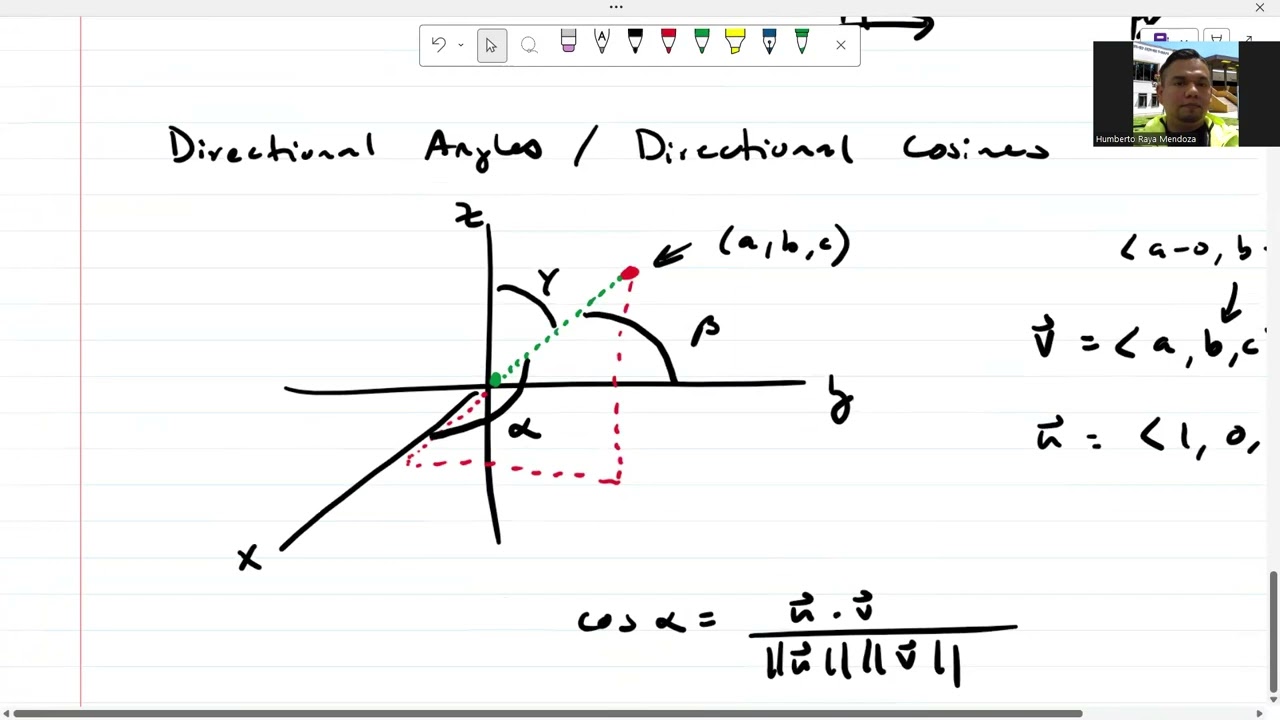 Humberto Raya Mendoza
Directional Angles / Directional Cosines
z
(a, b, c)
<a-0, b
γ
β
v⃗ = <a, b, c
y
α
u⃗ = <1, 0,
x
cos α = u⃗ · v⃗
||u⃗|| ||v⃗||